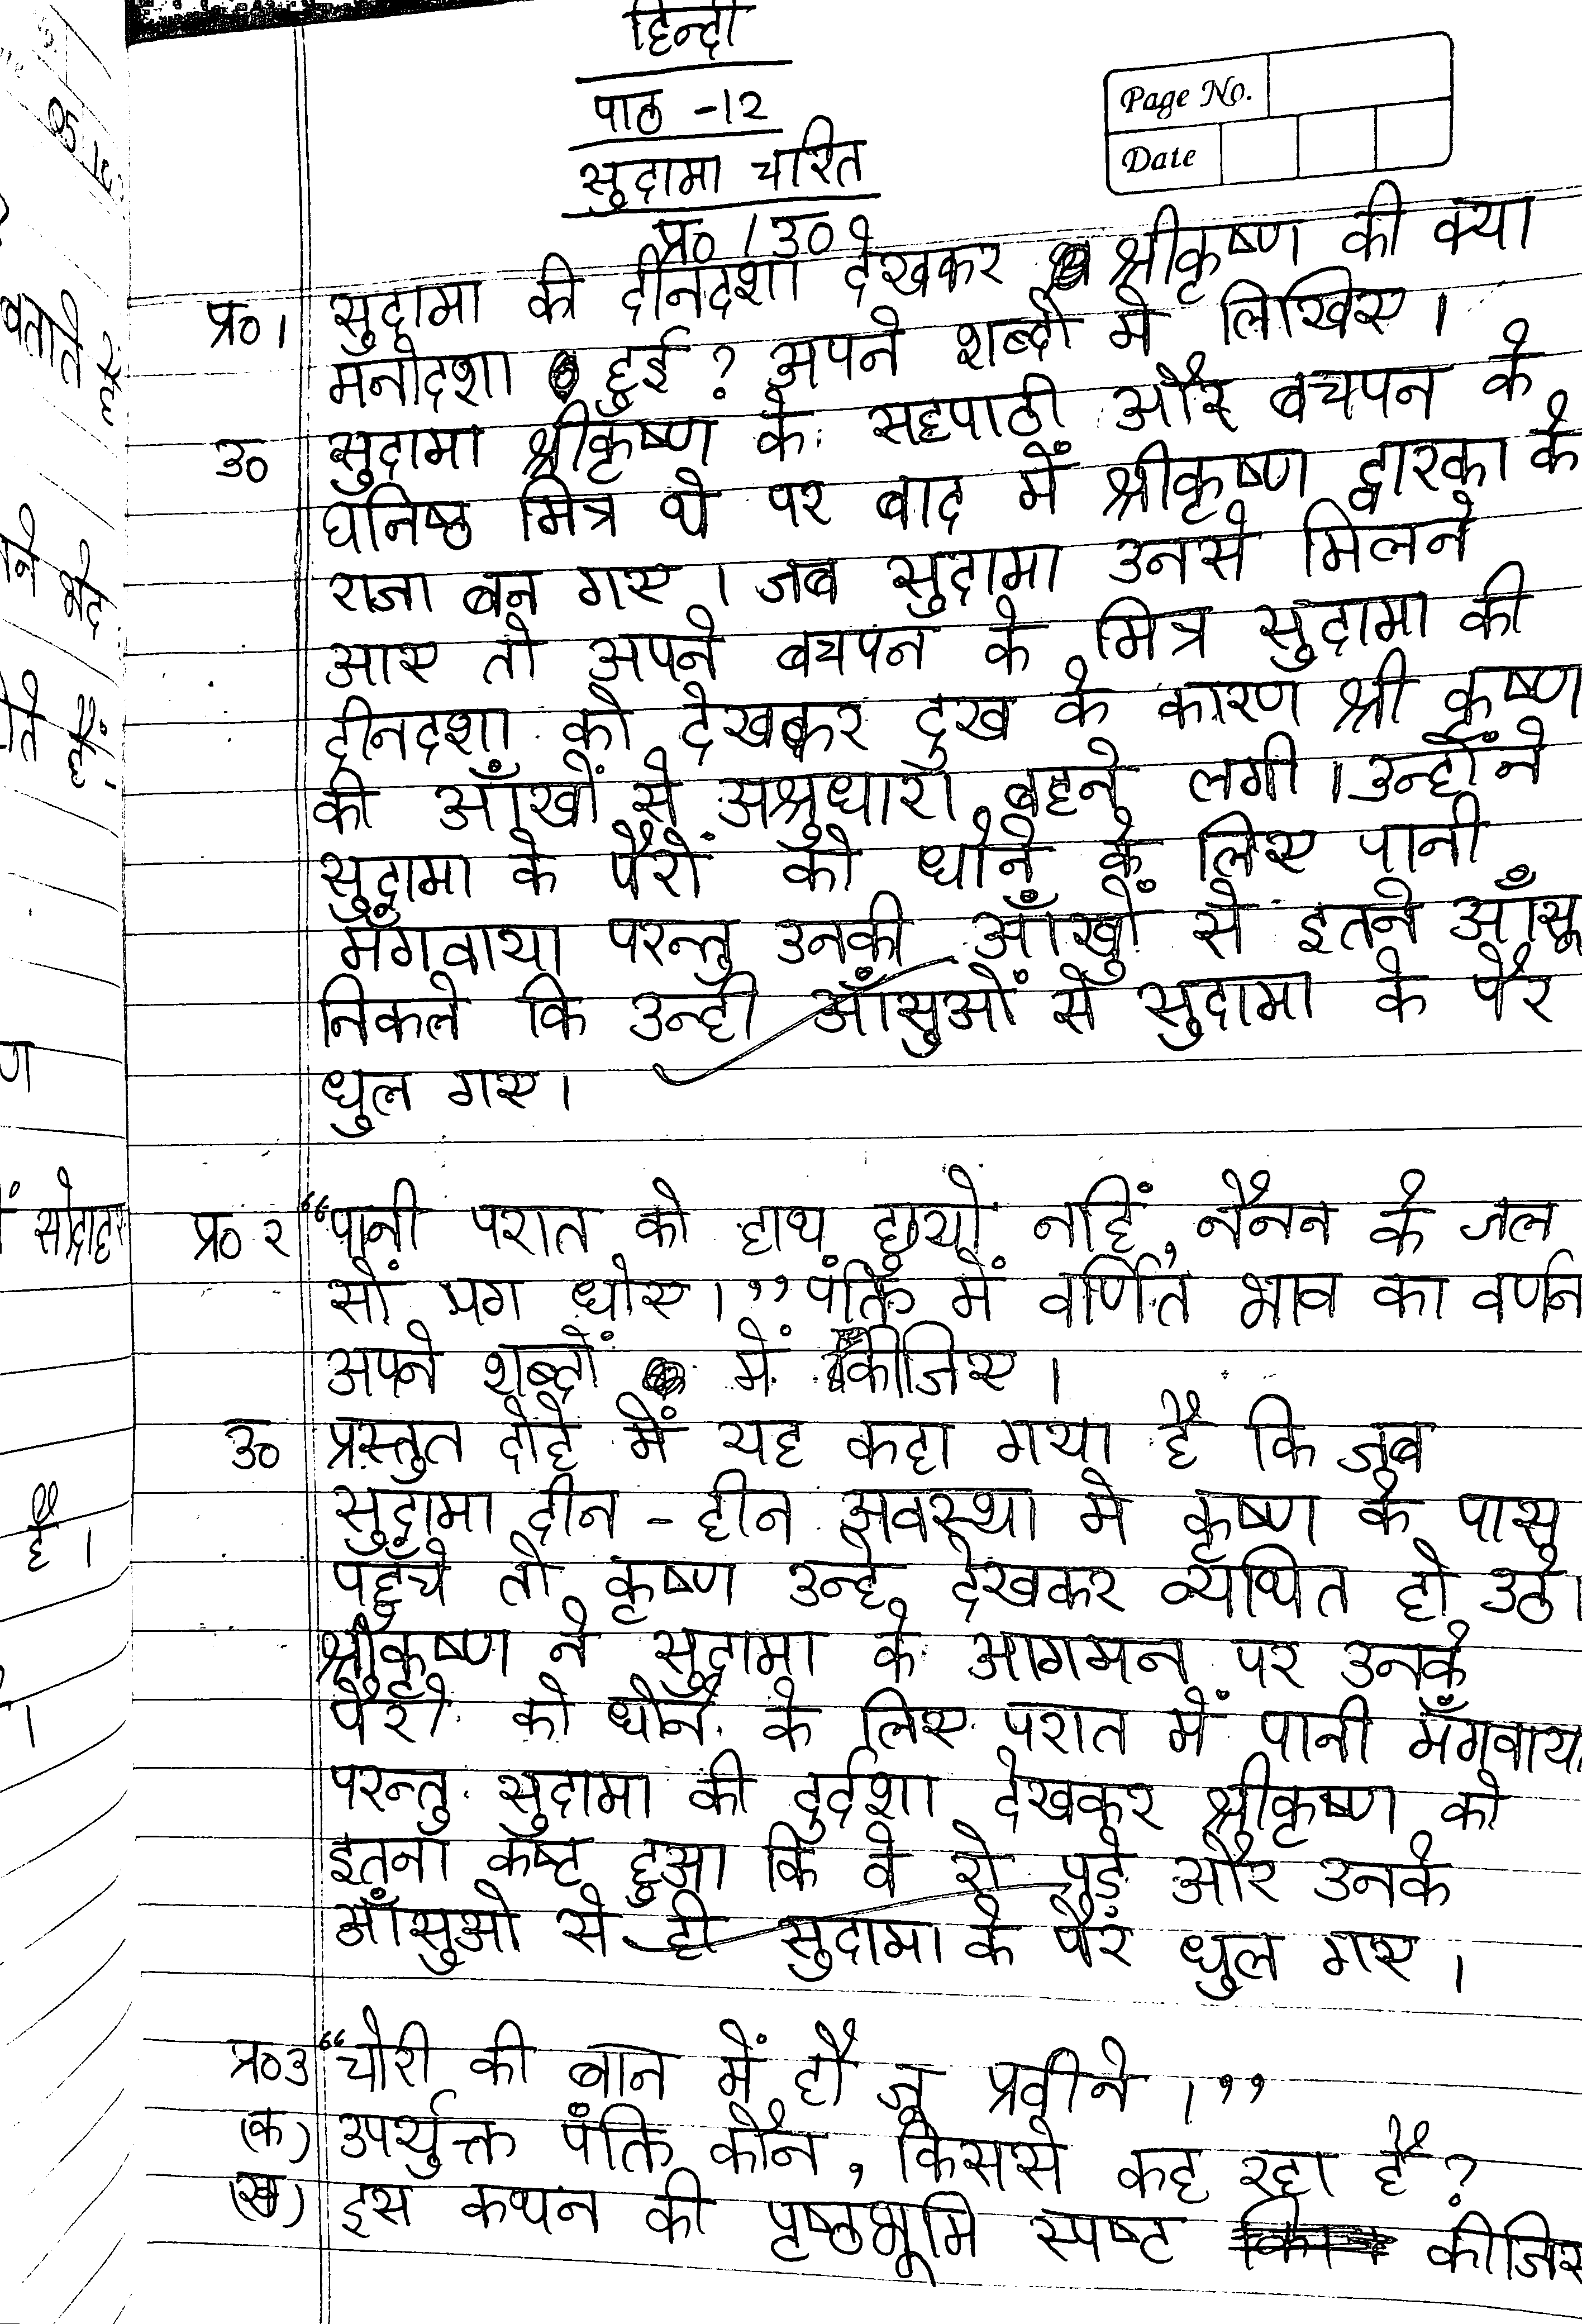 हिन्दी
पाठ -12
सुदामा चरित
Page No.
Date
प्र० / उ०
प्र०1 सुदामा की दीनदशा देखकर श्रीकृष्ण की क्या
मनोदशा हुई ? अपने शब्दों में लिखिए ।
उ० सुदामा श्रीकृष्ण के सहपाठी और बचपन के
घनिष्ठ मित्र थे पर बाद में श्रीकृष्ण द्वारका के
राजा बन गए । जब सुदामा उनसे मिलने
आए तो अपने बचपन के मित्र सुदामा की
दीनदशा को देखकर दुख के कारण श्री कृष्ण
की आँखों से अश्रुधारा बहने लगी । उन्होंने
सुदामा के पैरों को धोने के लिए पानी
मँगवाया परन्तु उनकी आँखों से इतने आँसू
निकले कि उन्ही आँसुओं से सुदामा के पैर
धुल गए ।
प्र० २ “पानी परात को हाथ छुयो नहिं, नैनन के जल
सों पग धोए ।” पंक्ति में वर्णित भाव का वर्णन
अपने शब्दों में कीजिए ।
उ० प्रस्तुत दोहे में यह कहा गया है कि जब
सुदामा दीन - हीन अवस्था मे कृष्ण के पास
पहुँचे तो कृष्ण उन्हे देखकर व्यथित हो उठे ।
श्रीकृष्ण ने सुदामा के आगमन पर उनके
पैरो को धोने के लिए परात में पानी मँगवाया
परन्तु सुदामा की दुर्दशा देखकर श्रीकृष्ण को
इतना कष्ट हुआ कि वे रो पड़े और उनके
आँसुओ से ही सुदामा के पैर धुल गए ।
प्र०3 “चोरी की बान में हौ जू प्रवीने ।”
(क) उपर्युक्त पंक्ति कौन, किससे कह रहा है ?
(ख) इस कथन की पृष्ठभूमि स्पष्ट कीजिए
बताते है
भेद
है ।